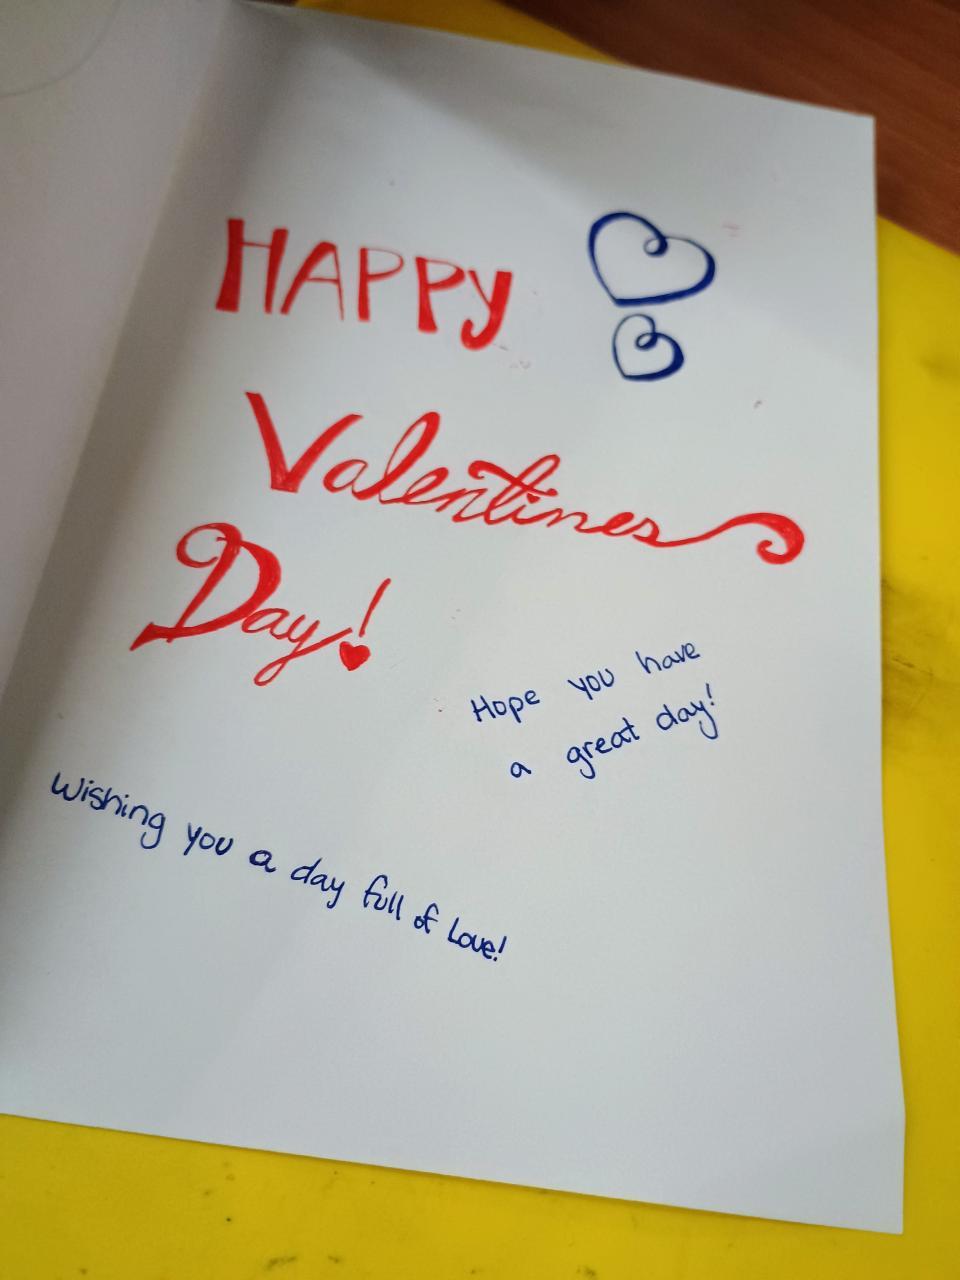 HAPPY
Valentines
Day!
Hope you have
a great day!
Wishing you a day full of Love!